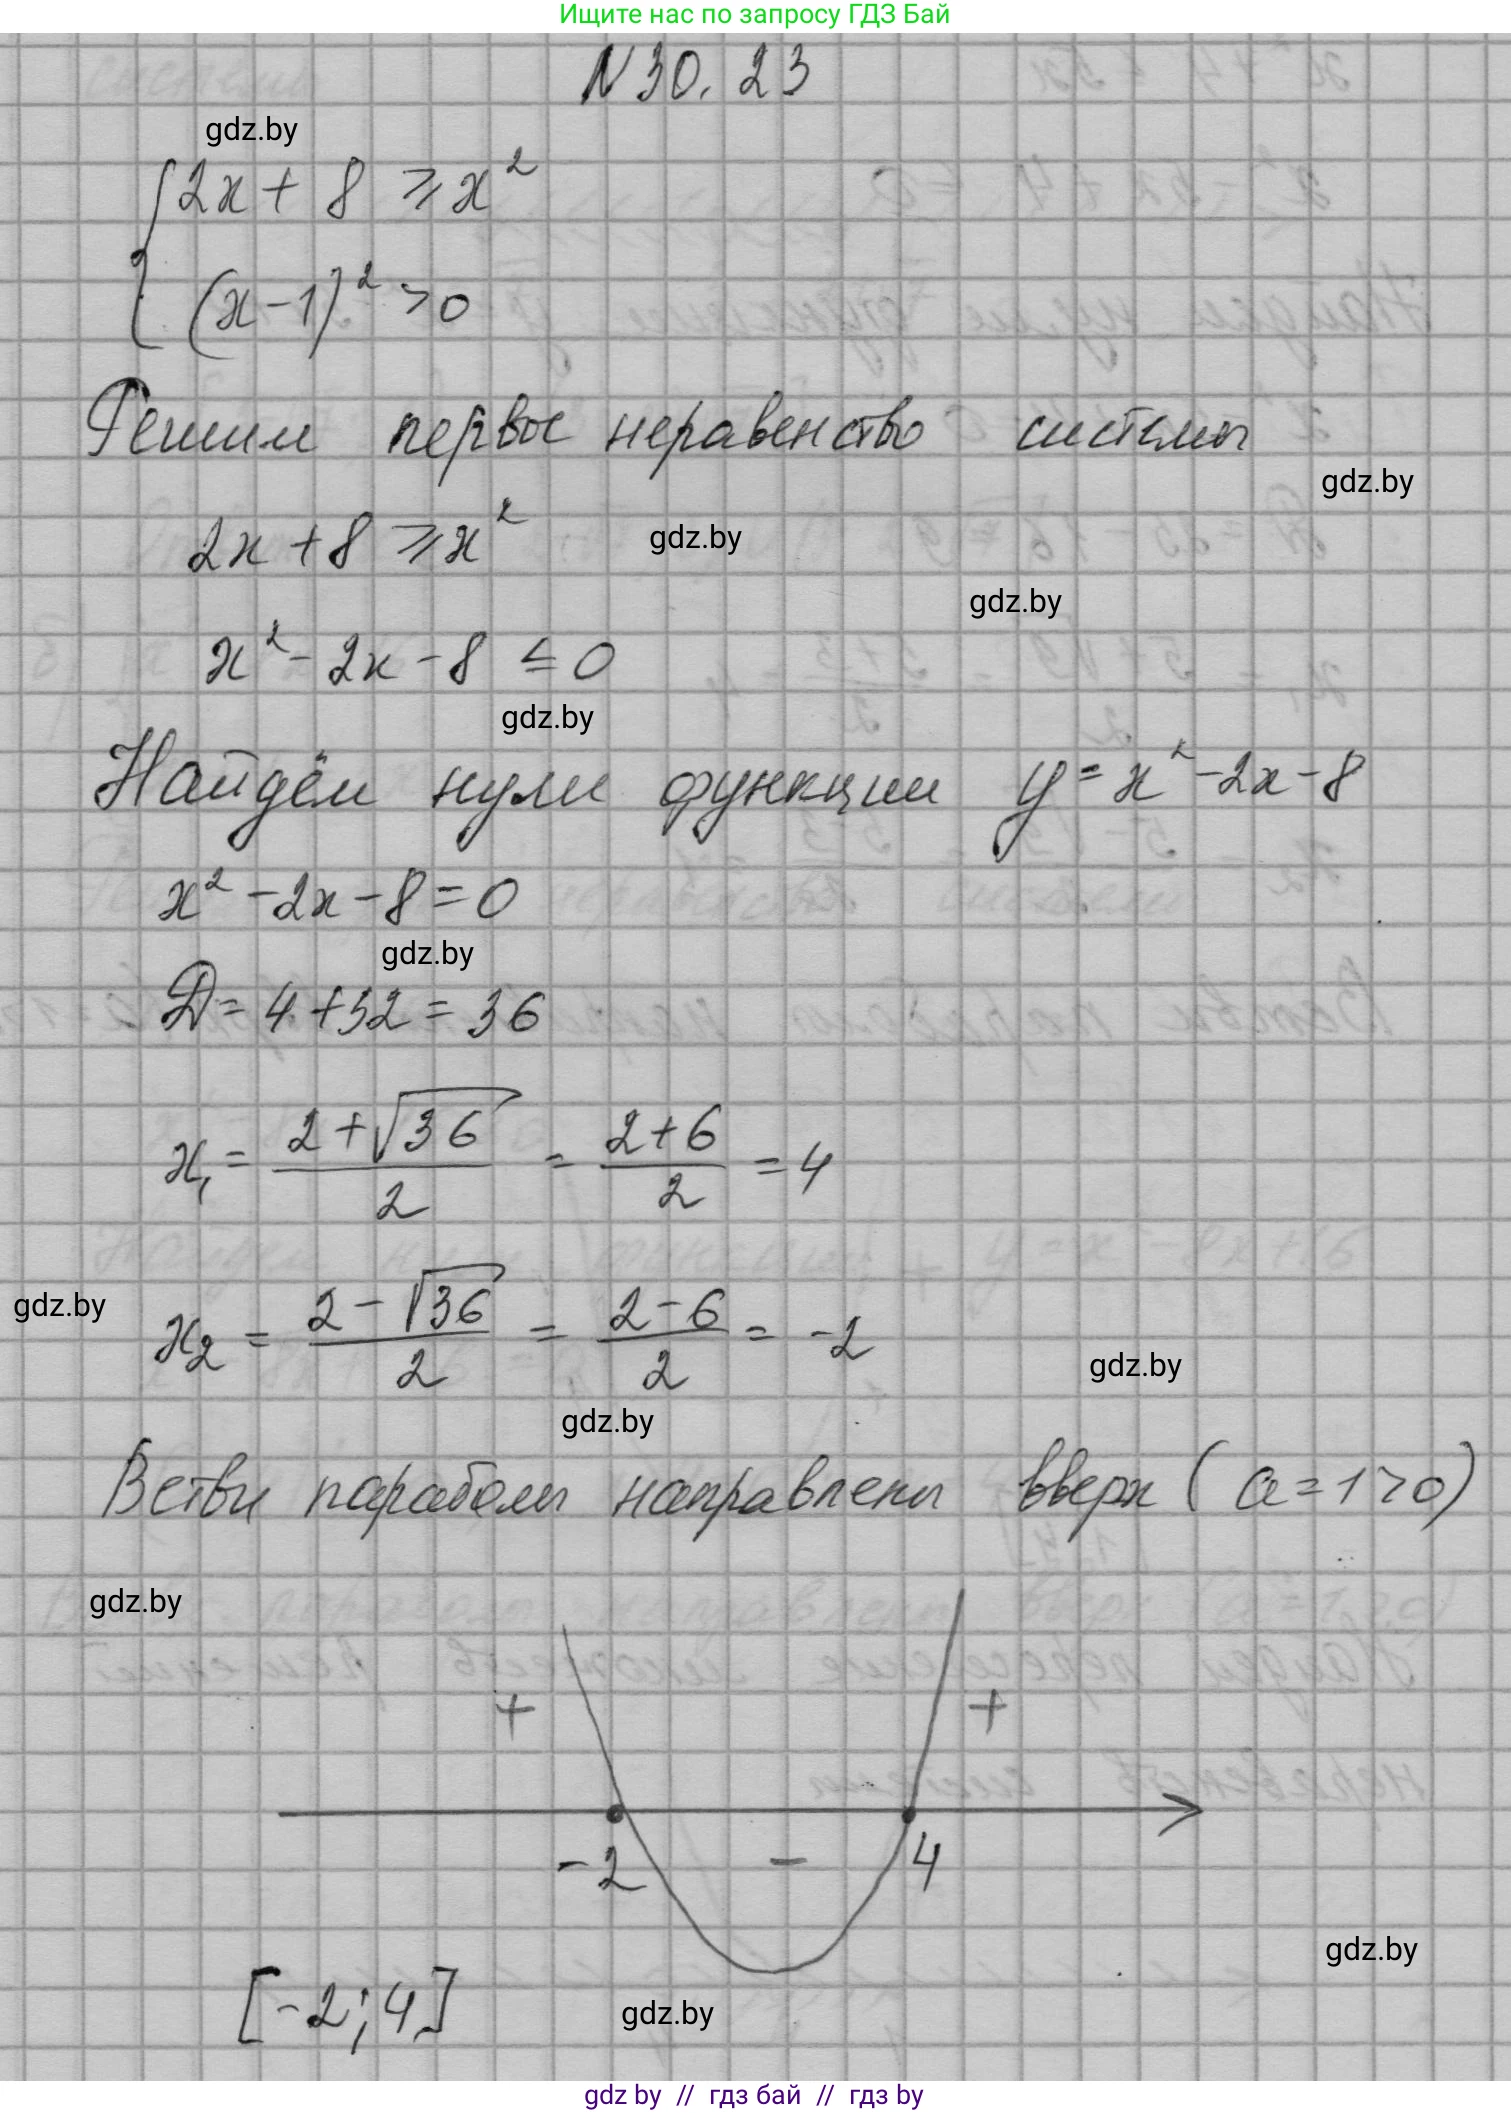 Ищите нас по запросу ГДЗ Бай
N 30. 23
gdz.by
{ 2x + 8 ⩾ x²
(x - 1)² > 0
Решим первое неравенство системы
gdz.by
2x + 8 ⩾ x²
gdz.by
gdz.by
x² - 2x - 8 ≤ 0
gdz.by
Найдём нули функции y = x² - 2x - 8
x² - 2x - 8 = 0
gdz.by
D = 4 + 32 = 36
x₁ = (2 + √36)/2 = (2 + 6)/2 = 4
gdz.by
x₂ = (2 - √36)/2 = (2 - 6)/2 = -2
gdz.by
gdz.by
Ветви параболы направлены вверх (a = 1 > 0)
gdz.by
+ +
-2 - 4
gdz.by
[-2; 4]
gdz.by
gdz by // гдз бай // гдз by